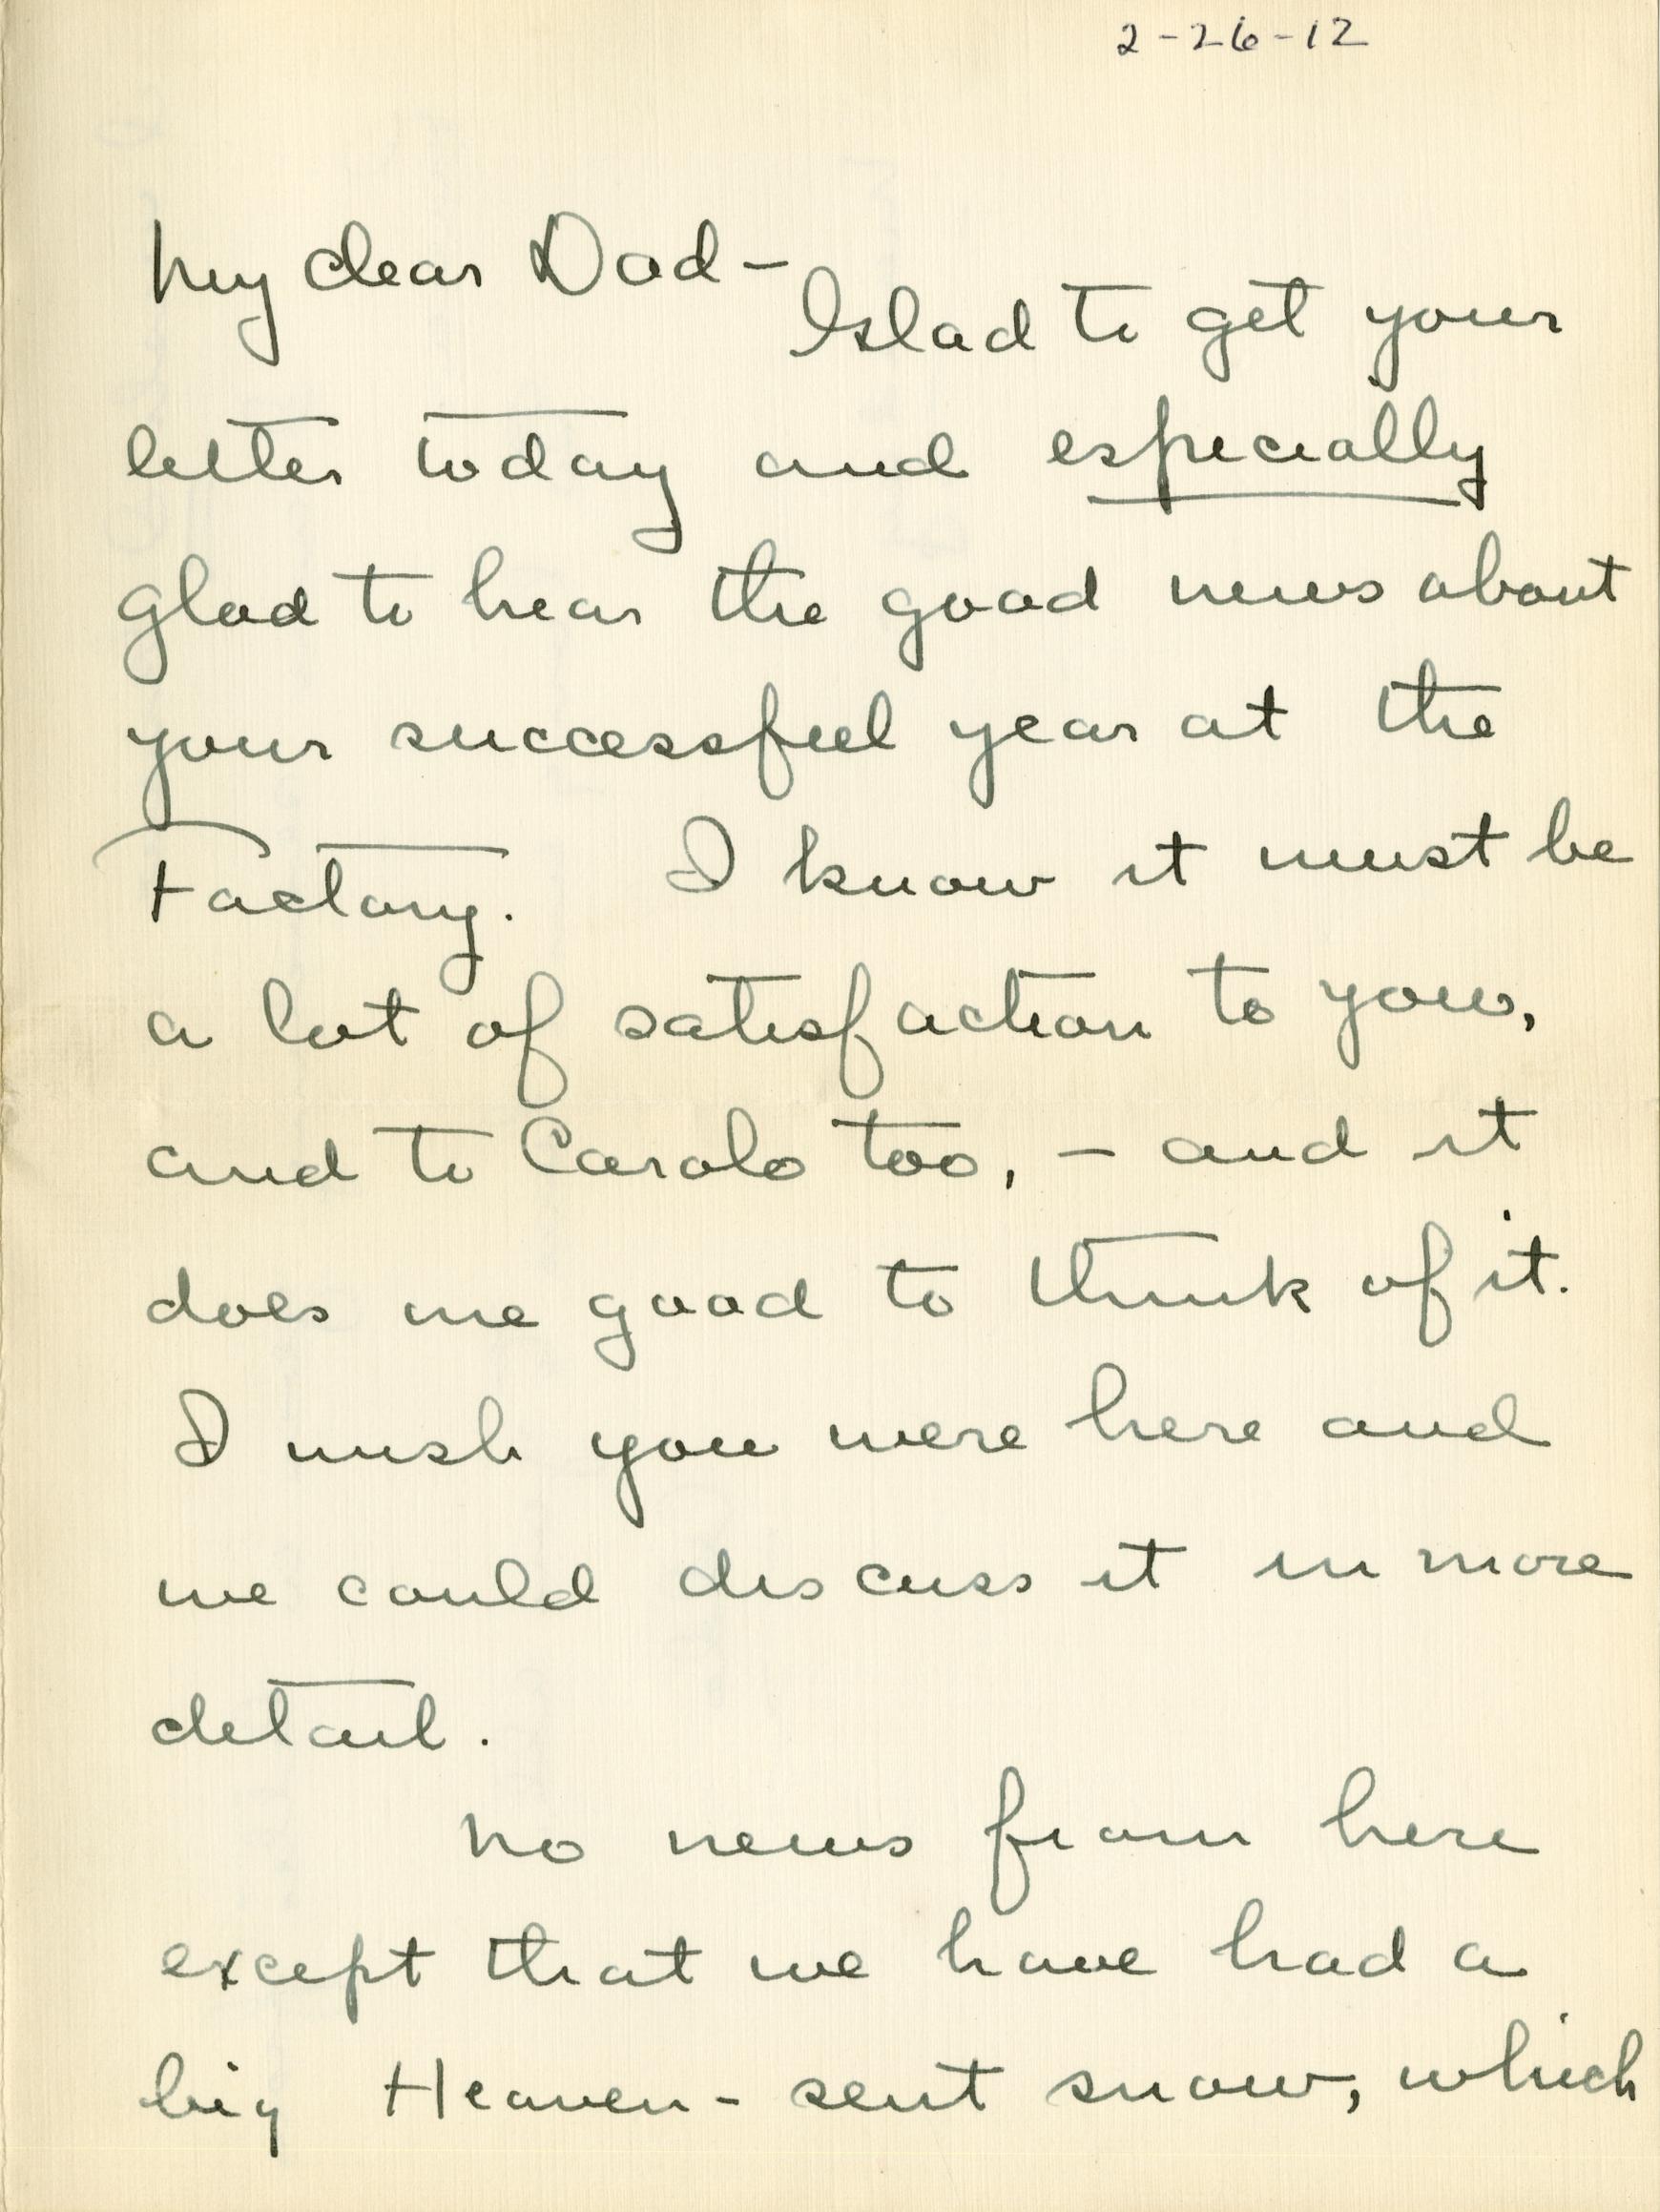 2-26-12
My dear Dad —
Glad to get your
letter today and especially
glad to hear the good news about
your successful year at the
Factory. I know it must be
a lot of satisfaction to you,
and to Carolo too, — and it
does me good to think of it.
I wish you were here and
we could discuss it in more
detail.
No news from here
except that we have had a
big Heaven-sent snow, which